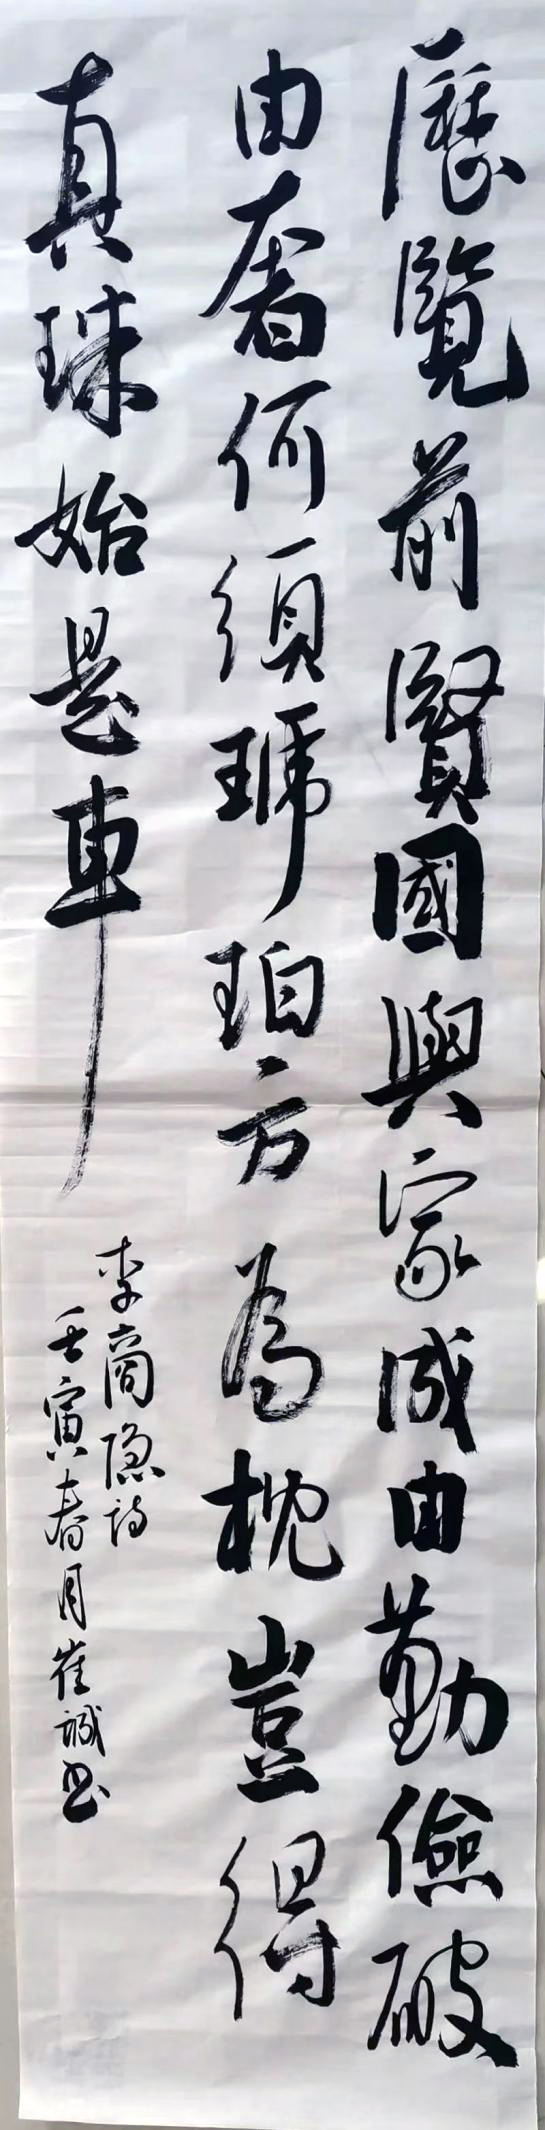 歷覽前賢國與家成由勤儉破
由奢何須琥珀方為枕豈得
真珠始是車
李商隐诗
壬寅春月崔诚书